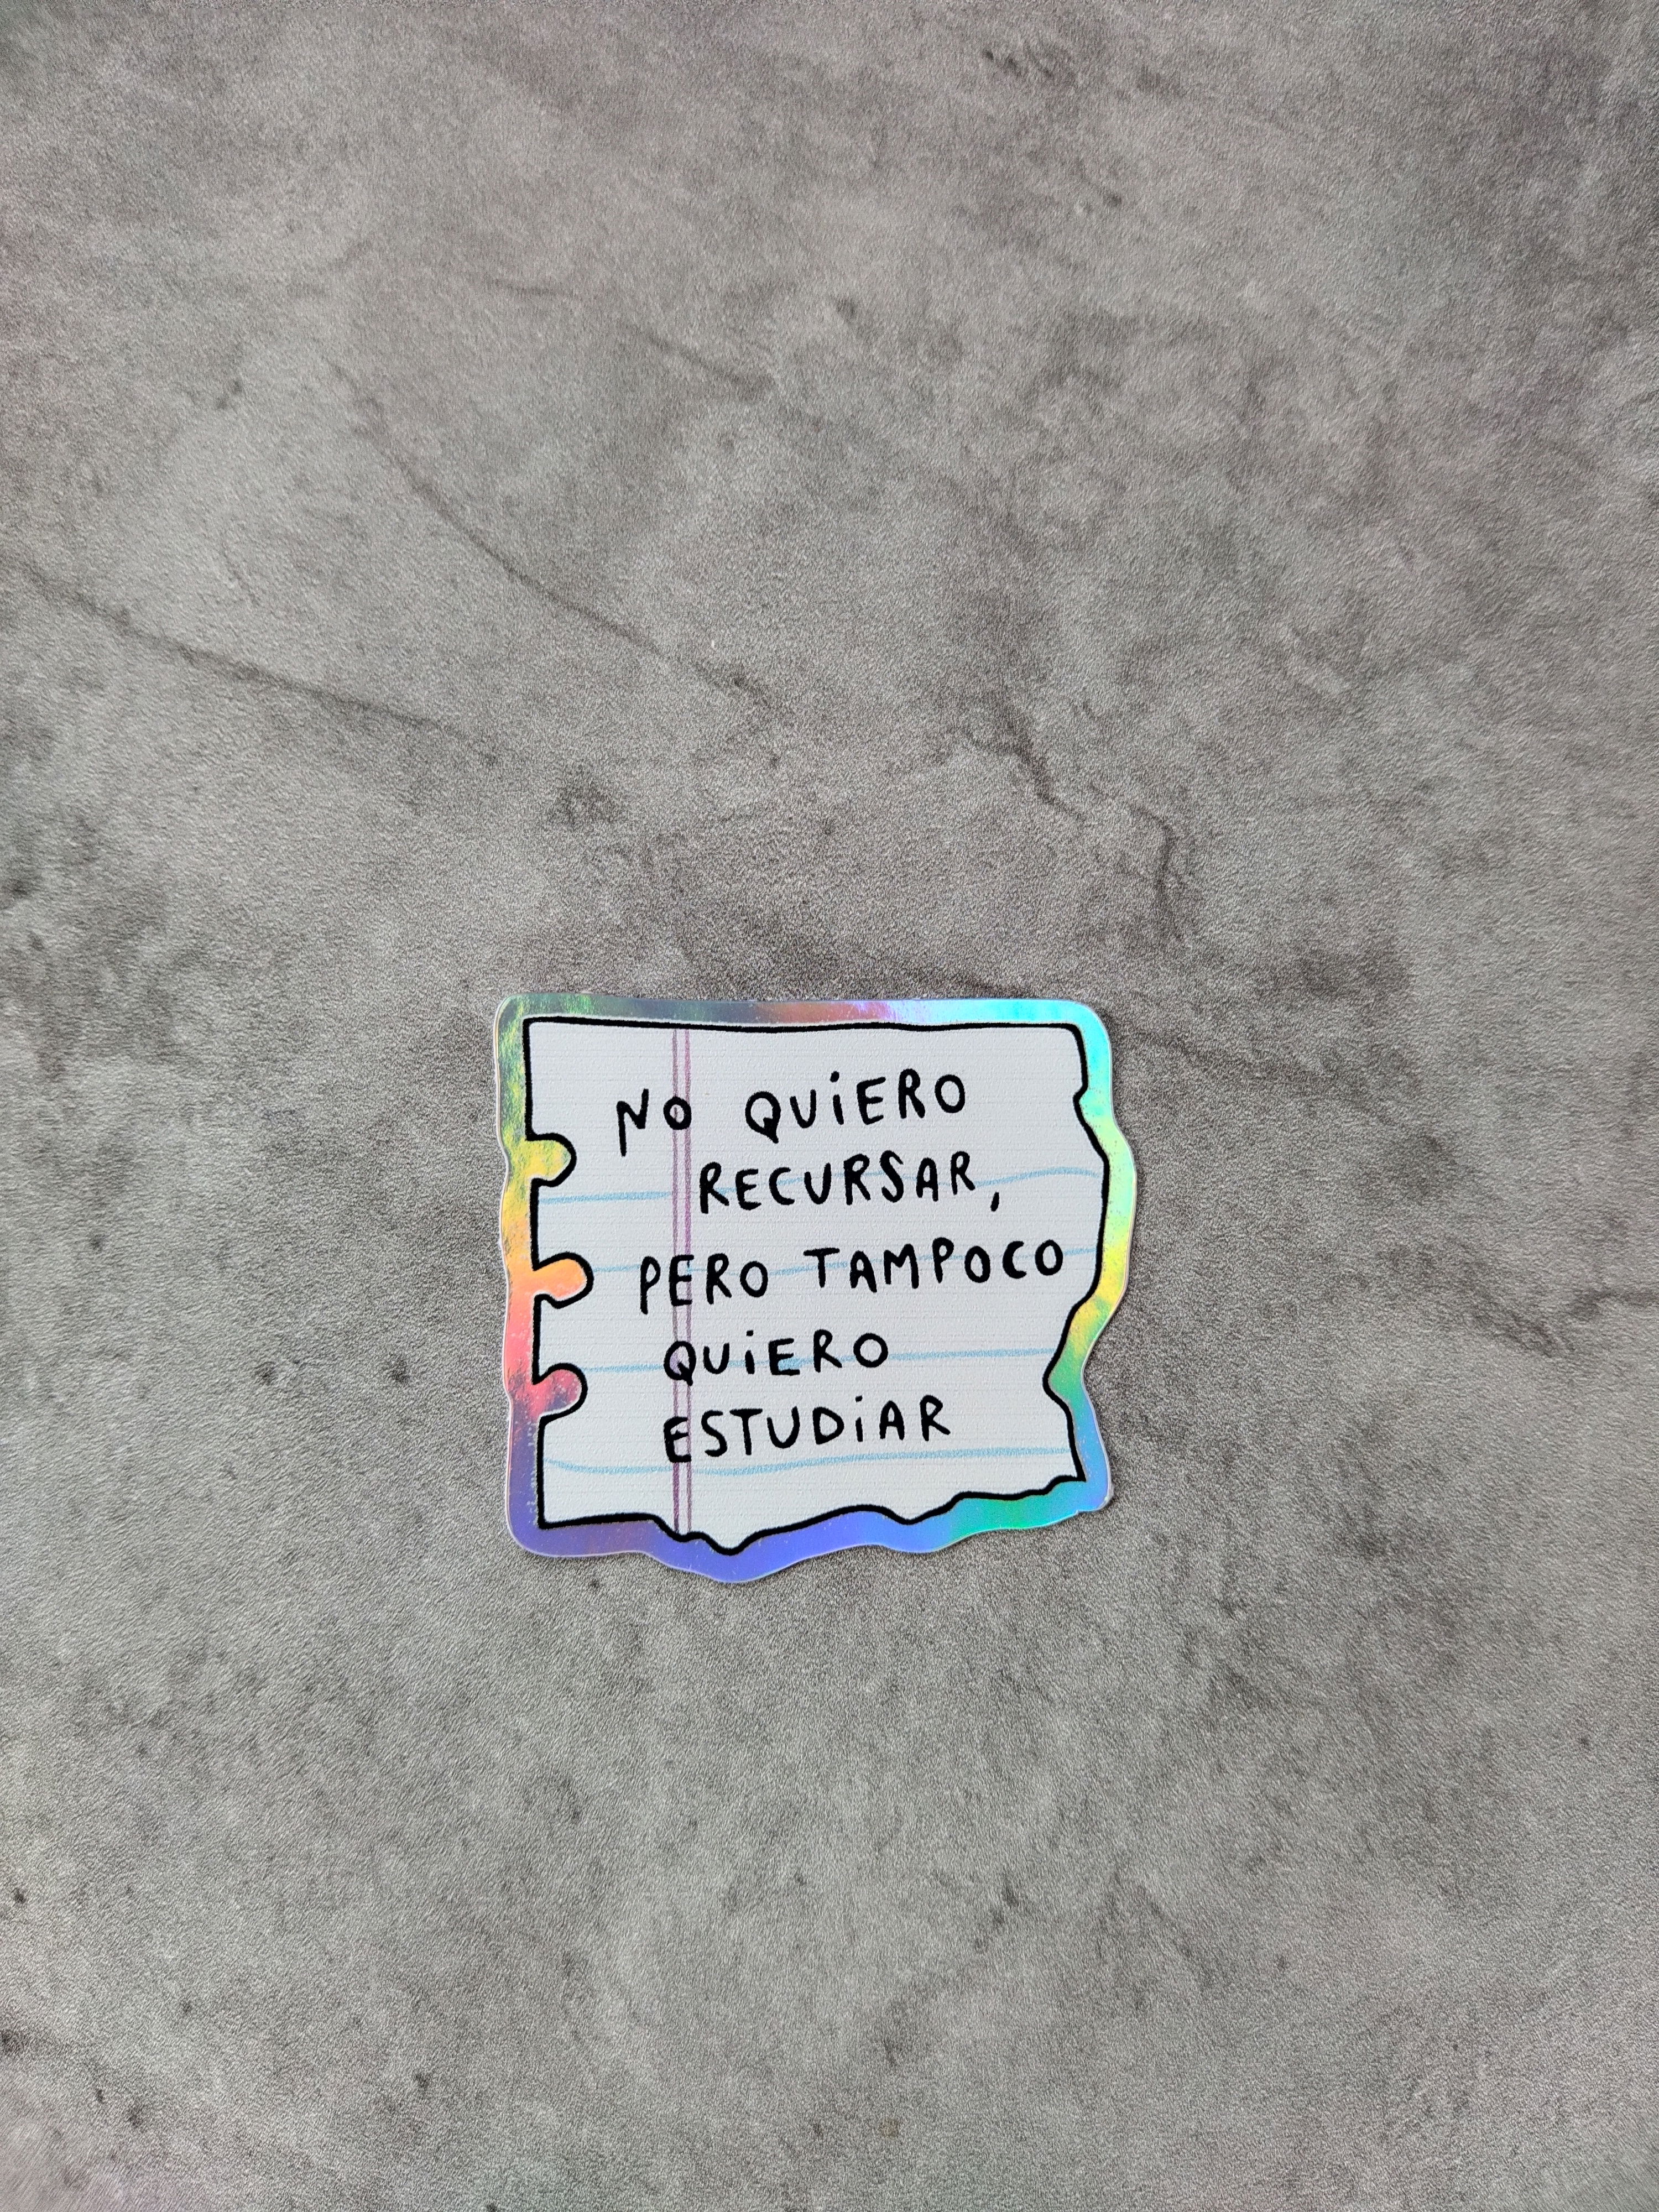 NO QUiERO
RECURSAR,
PERO TAMPOCO
QUiERO
ESTUDiAR